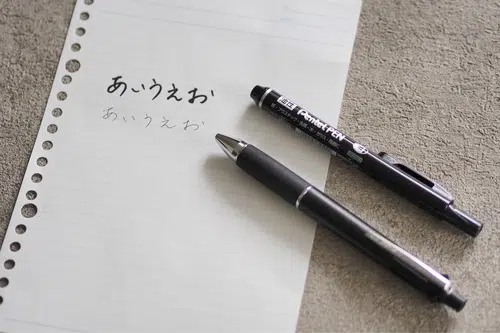 あいうえお
あいうえお
Pentel PEN